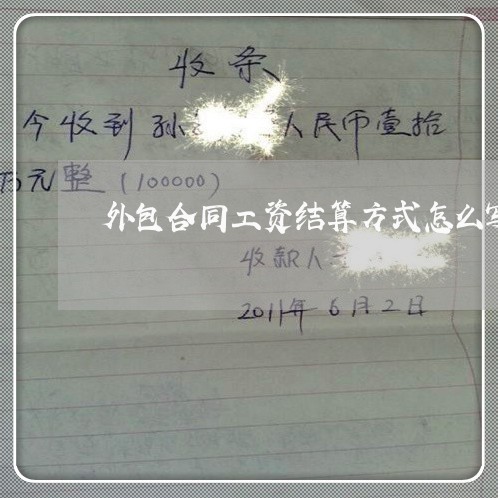 收条
今收到孙 人民币壹拾
万元整（100000）
外包合同工资结算方式怎么写
收款人
2011年6月2日